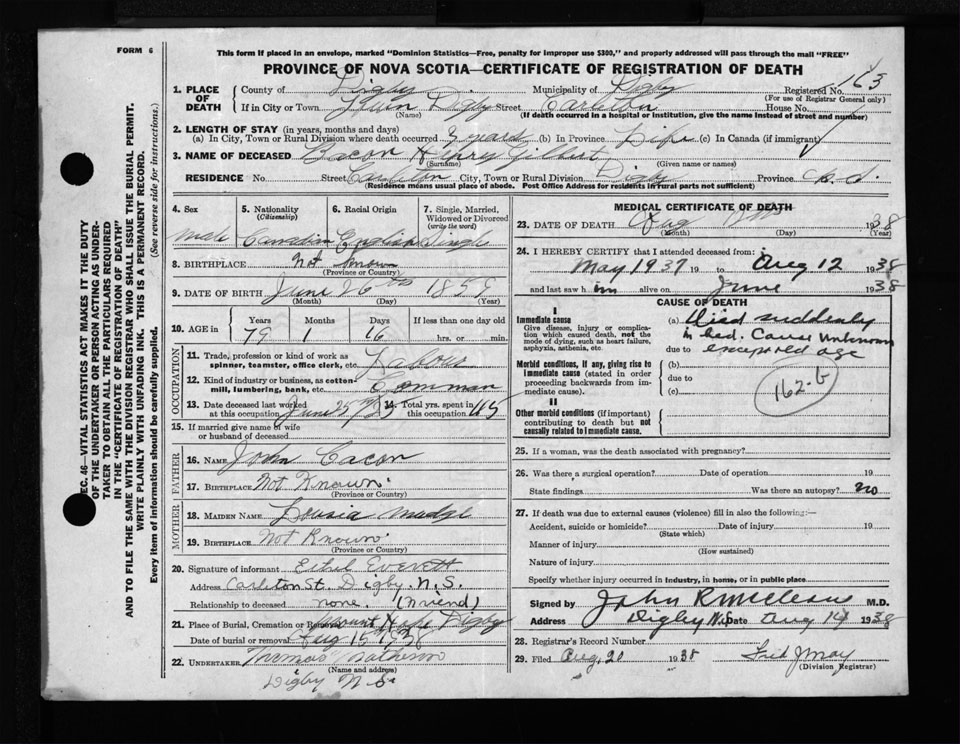 FORM 6
This form if placed in an envelope, marked "Dominion Statistics—Free, penalty for improper use $300," and properly addressed will pass through the mail "FREE"
PROVINCE OF NOVA SCOTIA—CERTIFICATE OF REGISTRATION OF DEATH
SEC. 46—VITAL STATISTICS ACT MAKES IT THE DUTY
OF THE UNDERTAKER OR PERSON ACTING AS UNDER-
TAKER TO OBTAIN ALL THE PARTICULARS REQUIRED
IN THE "CERTIFICATE OF REGISTRATION OF DEATH"
AND TO FILE THE SAME WITH THE DIVISION REGISTRAR WHO SHALL ISSUE THE BURIAL PERMIT.
WRITE PLAINLY WITH UNFADING INK. THIS IS A PERMANENT RECORD.
Every item of information should be carefully supplied. (See reverse side for instructions.)
1. PLACE OF DEATH County of Digby Municipality of Digby Registered No. 163
(For use of Registrar General only)
If in City or Town Digby Street Carleton House No.
(Name) (If death occurred in a hospital or institution, give the name instead of street and number)
2. LENGTH OF STAY (in years, months and days)
(a) In City, Town or Rural Division where death occurred 3 years (b) In Province Life (c) In Canada (if immigrant)
3. NAME OF DECEASED Cacon Henry Gilbert
(Surname) (Given name or names)
RESIDENCE No. Street Carleton City, Town or Rural Division Digby Province
(Residence means usual place of abode. Post Office Address for residents in rural parts not sufficient)
4. Sex 5. Nationality (Citizenship) 6. Racial Origin 7. Single, Married, Widowed or Divorced (write the word)
male Canadian English Single
8. BIRTHPLACE Not Known
(Province or Country)
9. DATE OF BIRTH June 26th 1859
(Month) (Day) (Year)
10. AGE in Years Months Days If less than one day old
79 1 16 hrs. or min.
OCCUPATION
11. Trade, profession or kind of work as spinner, teamster, office clerk, etc. Labour
12. Kind of industry or business, as cotton-mill, lumbering, bank, etc. Common
13. Date deceased last worked at this occupation June 25 14. Total yrs. spent in this occupation 45
15. If married give name of wife or husband of deceased
FATHER
16. NAME John Cacon
17. BIRTHPLACE Not Known
(Province or Country)
MOTHER
18. MAIDEN NAME Lousia Mudge
19. BIRTHPLACE Not Known
(Province or Country)
20. Signature of informant Ethel Everett
Address Carleton St. Digby. N.S.
Relationship to deceased none. (Friend)
21. Place of Burial, Cremation or Removal Mount Hope Digby
Date of burial or removal Aug 15th 38
22. UNDERTAKER
(Name and address)
Digby N.S.
MEDICAL CERTIFICATE OF DEATH
23. DATE OF DEATH Aug 1938
(Month) (Day) (Year)
24. I HEREBY CERTIFY that I attended deceased from:
May 1937 19 to Aug 12 1938
and last saw him alive on June 1938
CAUSE OF DEATH
I
Immediate cause
Give disease, injury or complication which caused death, not the mode of dying, such as heart failure, asphyxia, asthenia, etc.
(a) Died suddenly
in bed. Cause unknown
due to except old age
Morbid conditions, if any, giving rise to immediate cause (stated in order proceeding backwards from immediate cause).
(b)
due to
(c)
162-b
II
Other morbid conditions (if important) contributing to death but not causally related to immediate cause.
25. If a woman, was the death associated with pregnancy?
26. Was there a surgical operation? Date of operation 19
State findings Was there an autopsy? no
27. If death was due to external causes (violence) fill in also the following:—
Accident, suicide or homicide? Date of injury 19
(State which)
Manner of injury
(How sustained)
Nature of injury
Specify whether injury occurred in industry, in home, or in public place
Signed by John R McCleave M.D.
Address Digby N.S. Date Aug 14 1938
28. Registrar's Record Number
29. Filed Aug. 20 1938 Fred J May
(Division Registrar)